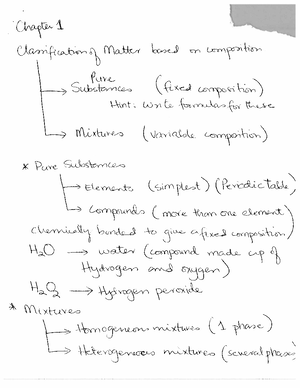 Chapter 1
Classification of Matter based on composition
Pure
Substances (fixed composition)
Hint: write formulas for these
Mixtures (variable composition)
* Pure Substances
Elements (simplest) (Periodic table)
Compounds (more than one element)
chemically bonded to give a fixed composition)
H₂O → water (compound made up of
Hydrogen and oxygen)
H₂O₂ → Hydrogen peroxide
* Mixtures
Homogeneous mixtures (1 phase)
Heterogeneous mixtures (several phases